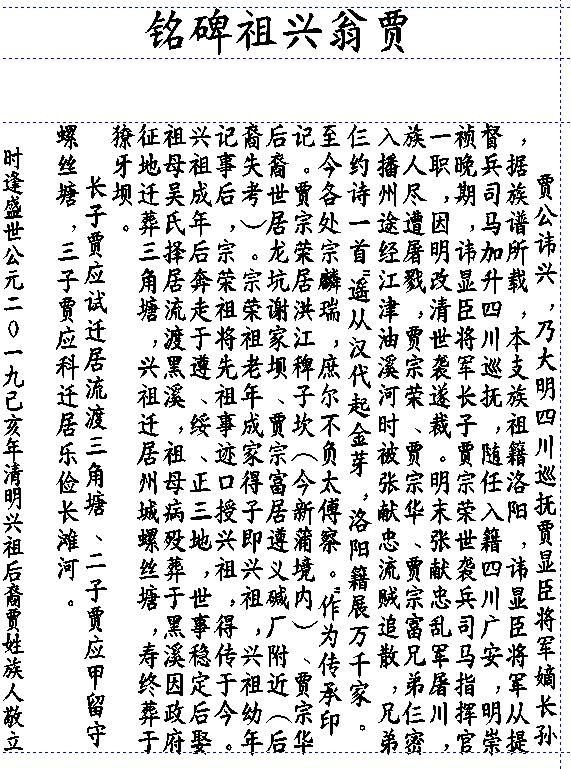 贾翁兴祖碑铭
贾公讳兴，乃大明四川巡抚贾显臣将军嫡长孙
，据族谱所载，本支族祖籍洛阳，讳显臣将军从提
督兵司马加升四川巡抚，随任入籍四川广安，明崇
祯晚期，讳显臣将军长子贾宗荣世袭兵司马指挥官
一职，因明改清世袭遂裁。明末张献忠乱军屠川，
族人尽遭屠戮，贾宗荣、贾宗华、贾宗富兄弟仨密
入播州途经江津油溪河时被张献忠流贼追散，兄弟
仨约诗一首“遥从汉代起金芽，洛阳籍展万千家。
至今各处宗麟瑞，庶尔不负太傅察。”作为传承印
记。贾宗荣居洪江稗子坎（今新蒲境内）、贾宗华
后裔世居龙坑谢家坝、贾宗富居遵义碱厂附近（后
裔失考）。宗荣祖老年成家得子即兴祖，兴祖幼年
记事后，宗荣祖将先祖事迹口授兴祖，得传于今。
兴祖成年后奔走于遵、绥、正三地，世事稳定后娶
祖母吴氏择居流渡黑溪，祖母病殁葬于黑溪因政府
征地迁葬三角塘，兴祖迁居州城螺丝塘，寿终葬于
獠牙坝。
长子贾应试迁居流渡三角塘、二子贾应甲留守
螺丝塘，三子贾应科迁居乐俭长滩河。
时逢盛世公元二0一九己亥年清明兴祖后裔贾姓族人敬立